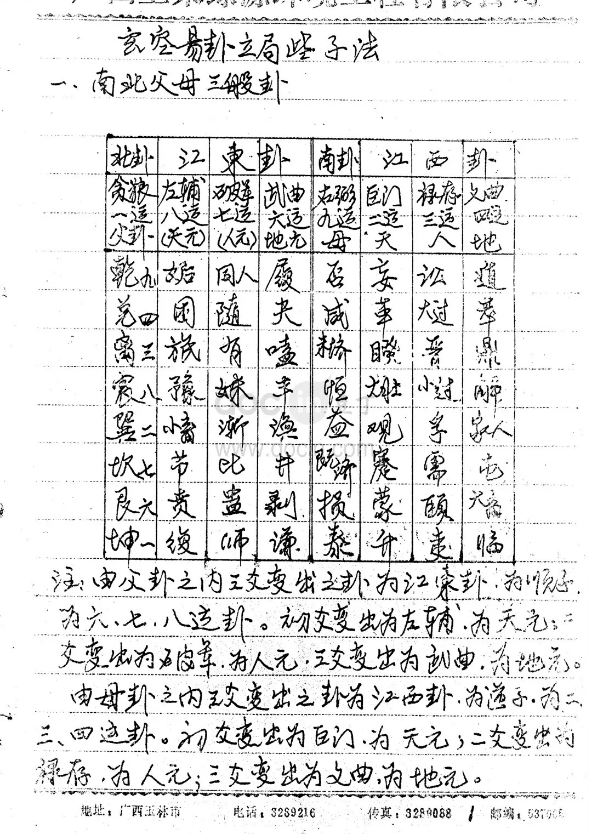 玄空易卦立局些子法
一、南北父母三般卦
北卦 江 東 卦 南卦 江 西 卦
貪狼 左輔 破軍 武曲 右弼 巨门 禄存 文曲
一运 八运 七运 六运 九运 二运 三运 四运
父卦 (天元) (人元) 地元 母 天 人 地
乾九 姤 同人 履 否 妄 讼 遁
兑四 困 随 夬 咸 革 大过 萃
离三 旅 有 嗑 未济 睽 晋 鼎
震八 豫 妹 丰 恒 大壮 小过 解
巽二 小畜 渐 涣 益 观 孚 家人
坎七 节 比 井 既济 蹇 需 屯
艮六 贲 蠱 剥 损 蒙 颐 大畜
坤一 復 师 谦 泰 升 夷 临
注：由父卦之内三爻变出之卦为江東卦，为顺子，
为六、七、八运卦。初爻变出为左辅，为天元；二
爻变出为破軍，为人元，三爻变出为武曲，为地元。
由母卦之内三爻变出之卦为江西卦，为逆子，为二、
三、四运卦。初爻变出为巨门，为天元；二爻变出为
禄存，为人元；三爻变出为文曲，为地元。
地址：广西玉林市 电话：3289216 传真：3289088 1 邮编：537000